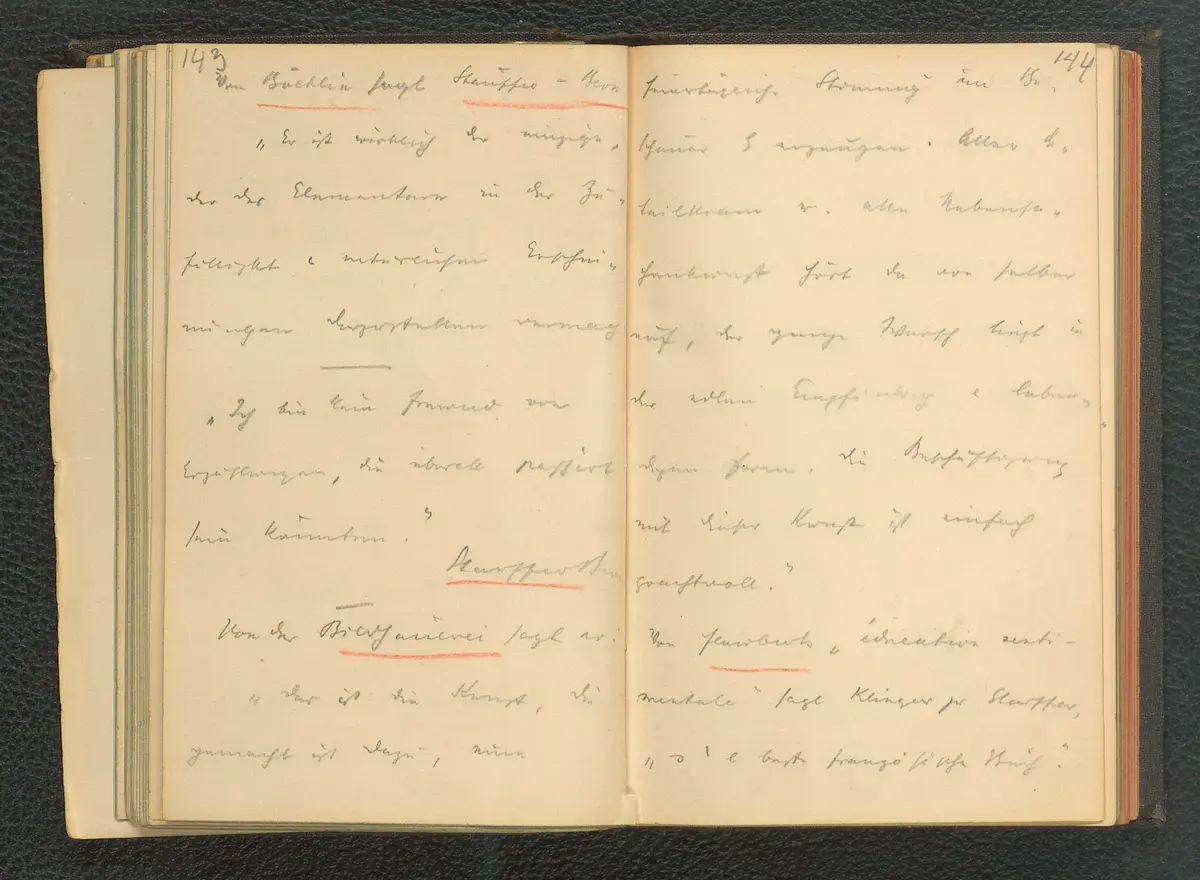 143
Von Böcklin sagt Stauffer-Bern
„Er ist wirklich der einzige,
der das Elementare in der Zu-
fälligkt natürlicher Erschei-
nungen darzustellen vermag
„Ich bin kein Freund von
Erzählungen, die überall passiert
sein könnten."
Stauffer Bern
Von der Bildhauerei sagt er:
„Das ist die Kunst, die
gemacht ist dazu, eine
144
feiertägliche Stimmung im Be-
schauer z erzeugen. Aller De-
tailkram u. alle Nebensa-
chenkunst hört da von selber
auf, der ganze Wursch liegt in
der edlen Empfindung & leben-
digen Form. Die Beschäftigung
mit dieser Kunst ist einfach
prachtvoll."
Von Flauberts „éducation senti-
mentale" sagt Klinger zu Stauffer,
„s' e beste französische Buch."